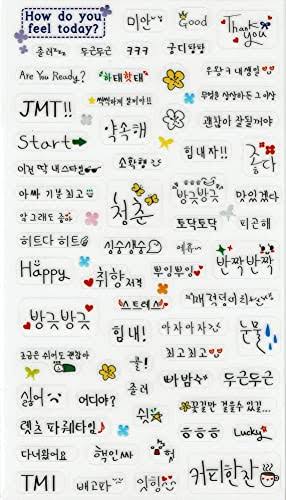 How do you
feel today?
미안
Good
Thank
you
졸려zzz
두근두근
ㅋㅋㅋ
궁디팡팡
Are You Ready?
하태핫태
우왕ㅋ내생일
JMT!!
무엇을 상상하든 그 이상
약속해
괜찮아 잘될꺼야
Start
힘내자!!
좋다
이건 딱 내스타일
소확행
아싸 기분최고
청춘
방긋방긋
맛있겠다
암그래도좋아
토닥토닥
피곤해
히트다 히트
싱숭생숭
에휴~
반짝반짝
Happy
취향저격
뿌잉뿌잉
스트레스
방긋방긋
힘내!
아자아자
눈물
조금은 쉬어도 괜찮아
콜!
최고최고
싫어
어디야?
졸려
빠밤
두근두근
쉿
꽃길만 걸을수 있길...
렛츠 파뤼타임
ㅎㅎㅎ
Lucky
다녀왔어요
핵인싸
헝
TMI
배고파
잇힝
커피한잔